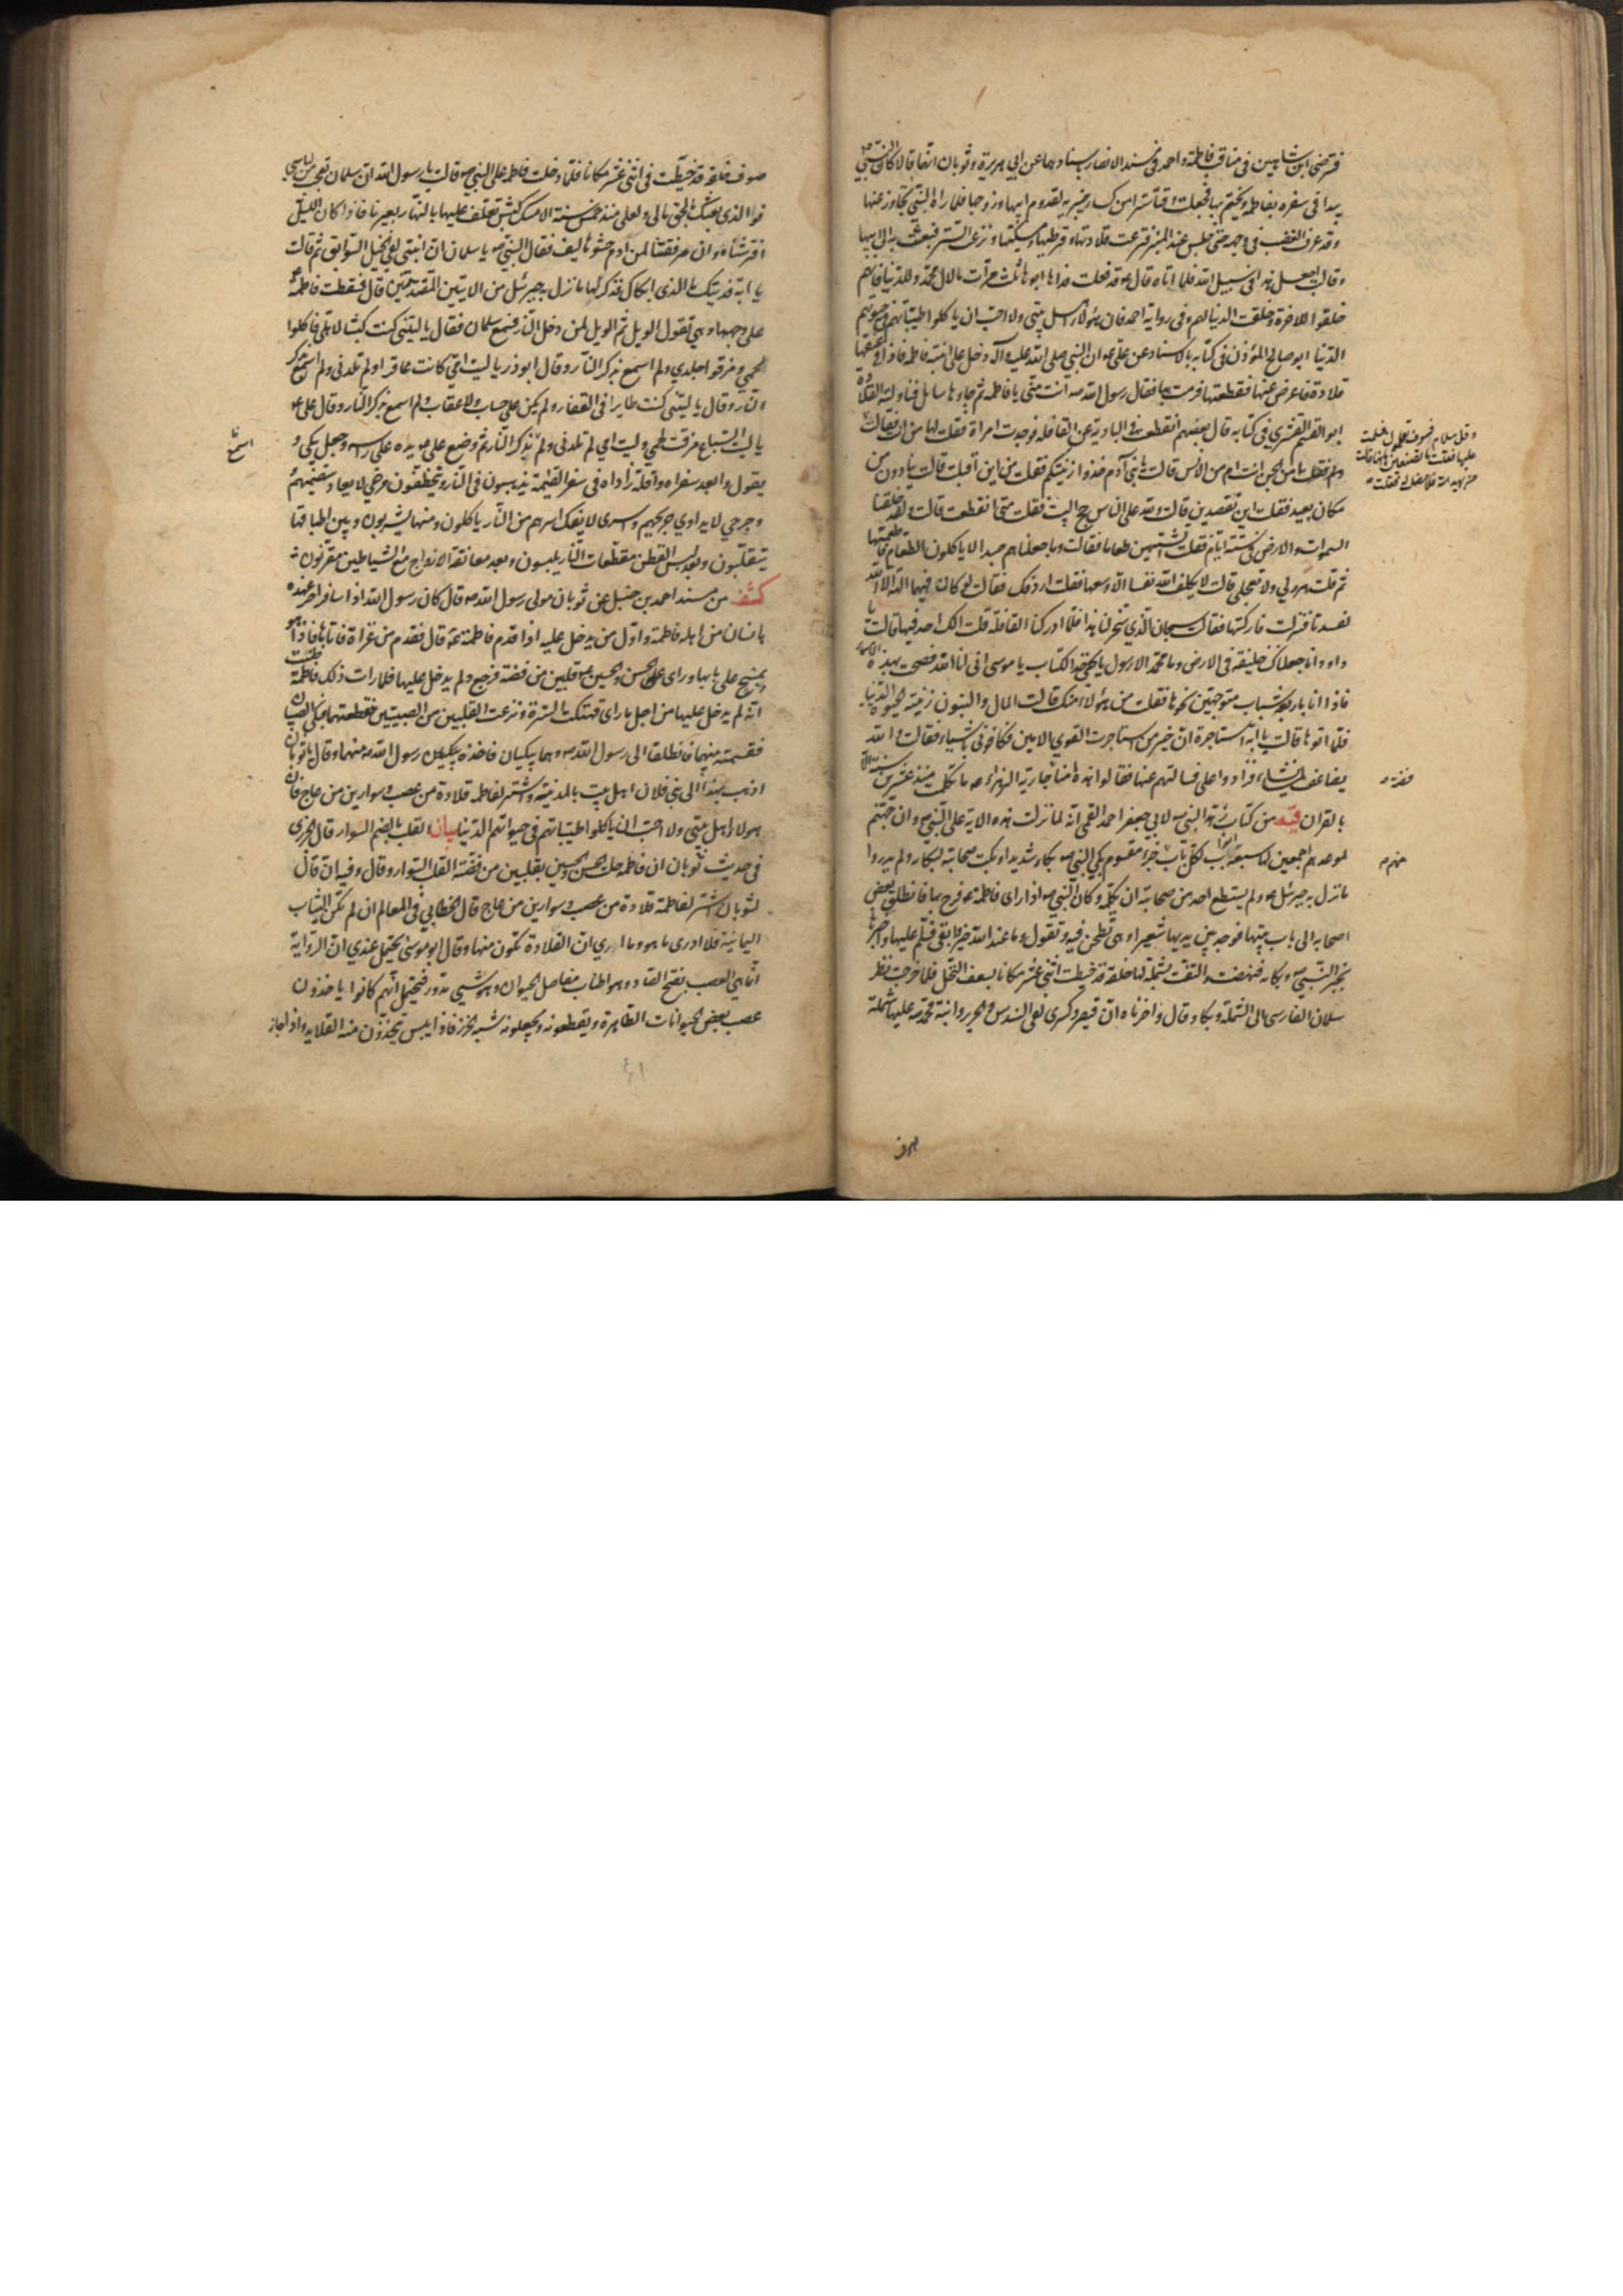 فترضى ابن شاهين في مناقب فاطمة واحمد في مسند الانصار باسنادهما عن ابي هريرة وثوبان انهما قالا كان النبي ص
يبدا في سفره بفاطمة ويختم بها فجعلت وقتا سترا من كساء خيبرية لقدوم ابيها وزوجها فلما راه النبي تجاوز عنها
وقد عرف الغضب في وجهه حتى جلس عند المنبر فنزعت قلادتها وقرطيها ومسكتيها ونزعت الستر فبعثت به الى ابيها
وقالت اجعل هذا في سبيل الله فلما اتاه قال ع قد فعلت فداها ابوها ثلث مرات ما لال محمد وللدنيا فانهم
خلقوا للاخرة وخلقت الدنيا لهم وفي رواية احمد فان هؤلاء اهل بيتي ولا احب ان ياكلوا طيباتهم في حيوتهم
الدنيا ابو صالح المؤذن في كتابه بالاسناد عن علي ع ان النبي صلى الله عليه وآله دخل على ابنته فاطمة فاذا في عنقها
قلادة فاعرض عنها فقطعتها فرمت بها فقال رسول الله ص انت مني يا فاطمة ثم جاءها سايل فناولته القلادة
ابو القسم القشيري في كتابه قال بعضهم انقطعت في البادية عن القافلة فوجدت امراة فقلت لها من انت فقالت
وقل سلام فسوف تعلمون فسلمت
عليها فقلت ما تصنعين ههنا قالت
من يهد الله فلا مضل له فقلت
امن الجن انت ام من الانس قالت يا بني آدم خذوا زينتكم فقلت من اين اقبلت قالت ينادون من
مكان بعيد فقلت اين تقصدين قالت ولله على الناس حج البيت فقلت متى انقطعت قالت ولقد خلقنا
السموات والارض في ستة ايام فقلت اتشتهين طعاما فقالت وما جعلناهم جسدا لا ياكلون الطعام فاطعمتها
ثم قلت هرولي ولا تعجلي قالت لا يكلف الله نفسا الا وسعها فقلت اردفك فقالت لو كان فيهما آلهة الا الله
لفسدتا فنزلت فاركبتها فقالت سبحان الذي سخر لنا هذا فلما ادركنا القافلة قلت الك احد فيها قالت يا
داود انا جعلناك خليفة في الارض وما محمد الا رسول يا يحيى خذ الكتاب يا موسى اني انا الله فصحت بهذه الاسماء
فاذا انا باربعة شباب متوجهين نحوها فقلت من هؤلاء منك قالت المال والبنون زينة الحيوة الدنيا
فلما اتوها قالت يا ابة استاجره ان خير من استاجرت القوي الامين فكافوني باشياء فقالت والله
يضاعف لمن يشاء فزادوا علي فسالتهم عنها فقالوا هذه امنا فضة جارية الزهراء ص ما تكلمت منذ عشرين سنة الا
فضة
بالقران قيه من كتاب زهد النبي ص لابي جعفر احمد القمي انه لما نزلت هذه الاية على النبي ص وان جهنم
لموعدهم اجمعين لها سبعة ابواب لكل باب منهم جزء مقسوم بكى النبي ص بكاء شديدا وبكت صحابته لبكائه ولم يدروا
منهم
ما نزل به جبرئيل ع ولم يستطع احد من صحابته ان يكلمه وكان النبي ص اذا راى فاطمة ع فرح بها فانطلق بعض
اصحابه الى باب بيتها فوجد بين يديها شعيرا وهي تطحن فيه وتقول وما عند الله خير وابقى فسلم عليها واخبرها
بخبر النبي ص وبكائه فنهضت والتفت بشملة لها خلقة قد خيطت اثنى عشر مكانا بسعف النخل فلما خرجت نظر
سلمان الفارسي الى الشملة وبكى وقال واحزناه ان قيصر وكسرى لفي السندس والحرير وابنة محمد ص عليها شملة
صوف
صوف خلقة قد خيطت في اثنى عشر مكانا فلما دخلت فاطمة على النبي ص قالت يا رسول الله ان سلمان تعجب من لباسي
فوالذي بعثك بالحق ما لي ولعلي منذ خمس سنة الا مسك كبش تعلف عليها بالنهار بعيرنا فاذا كان الليل
افترشناه وان مرفقتنا لمن ادم حشوها ليف فقال النبي ص يا سلمان ان ابنتي لفي الخيل السوابق ثم قالت
يا ابة فديتك ما الذي ابكاك فذكر لها ما نزل به جبرئيل من الايتين المتقدمتين قال فسقطت فاطمة ع
على وجهها وهي تقول الويل ثم الويل لمن دخل النار فسمع سلمان فقال يا ليتني كنت كبشا لاهلي فاكلوا
لحمي ومزقوا جلدي ولم اسمع بذكر النار وقال ابو ذر يا ليت امي كانت عاقرا ولم تلدني ولم اسمع بذكر
النار وقال يا ليتني كنت طايرا في القفار ولم يكن علي حساب ولا عقاب ولم اسمع بذكر النار وقال علي ع
يا ليت السباع مزقت لحمي وليت امي لم تلدني ولم بذكر النار ثم وضع علي ع يده على راسه وجعل يبكي و
اسمع
يقول وا بعد سفراه وا قلة زاداه في سفر القيمة يذهبون في النار ويتخطفون مرضى لا يعاد سقيمهم
وجرحى لا يداوي جريحهم واسرى لا يفك اسرهم من النار ياكلون ومنها يشربون وبين اطباقها
يتقلبون وبعد لبس القطن مقطعات النار يلبسون وبعد معانقة الازواج مع الشياطين مقرنون
كشف من مسند احمد بن حنبل عن ثوبان مولى رسول الله ص قال كان رسول الله اذا سافر اخر عهده
بانسان من اهله فاطمة واول من يدخل عليه اذا قدم فاطمة ع قال فقدم من غزاة فاتاها فاذا هو
بمسح على بابها وراى على الحسن والحسين ع قلبين من فضة فرجع ولم يدخل عليها فلما رات ذلك فاطمة ظنت
انه لم يدخل عليها من اجل ما راى فهتكت السترة ونزعت القلبين من الصبيين فقطعتهما فبكى الصبيان
فقسمته بينهما فانطلقا الى رسول الله ص وهما يبكيان فاخذه رسول الله ص منهما وقال يا ثوبان
اذهب بهذا الى بني فلان اهل بيت بالمدينة واشتر لفاطمة قلادة من عصب وسوارين من عاج فان
هولاء اهل بيتي ولا احب ان ياكلوا طيباتهم في حيوتهم الدنيا بيان القلب بالضم السوار قال الجزري
في حديث ثوبان ان فاطمة حلت الحسن والحسين بقلبين من فضة القلب السوار وقال وفيه انه قال
لثوبان اشتر لفاطمة قلادة من عصب وسوارين من عاج قال الخطابي في المعالم ان لم تكن الثياب
اليمانية فلا ادري ما هو وما ادري ان القلادة تكون منها وقال ابو موسى يحتمل عندي ان الرواية
انما هي العصب بفتح الصاد وهو اطناب مفاصل الحيوان وهو شيي مدور فيحتمل انهم كانوا ياخذون
عصب بعض الحيوانات الطاهرة ويقطعونه ويجعلونه شبه الخرز فاذا يبس يتخذون منه القلايد واذا جاز